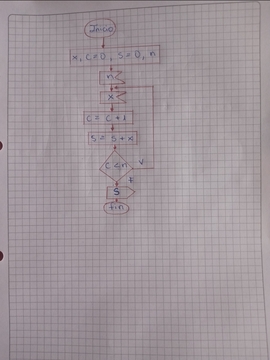 Inicio
x, C=0, S=0, n
n
x
C = C + 1
S = S + x
C < n
V
F
S
fin